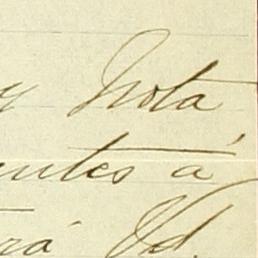 y Nota
entes á
rá Vd.